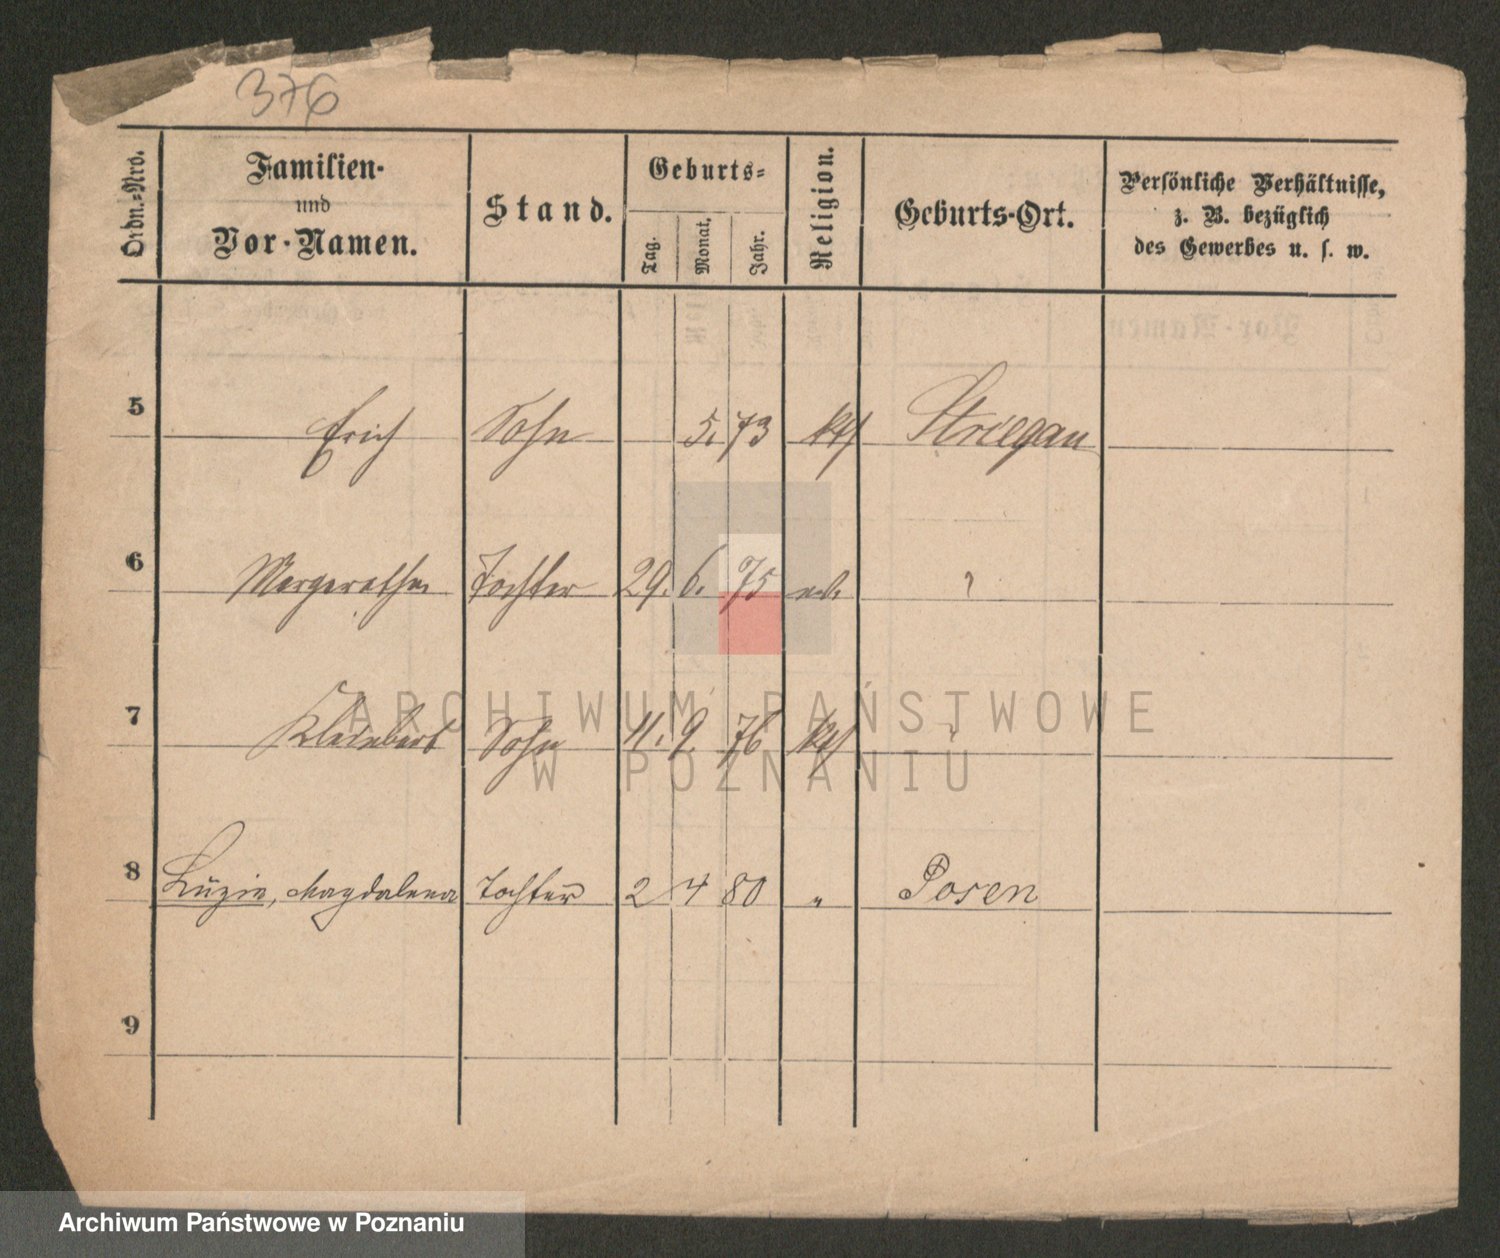 376
Ordn.-Nro.
Familien-
und
Vor-Namen.
Stand.
Geburts-
Tag.
Monat.
Jahr.
Religion.
Geburts-Ort.
Persönliche Verhältnisse,
z. B. bezüglich
des Gewerbes u. s. w.
5 Erich Sohn 5. 73 kth Striegau
6 Margarethe Tochter 29. 6. 75
7 Sohn 11. 9. 76 kth
8 Luzie, Magdalena Tochter 2 4 80 " Posen
9
ARCHIWUM PAŃSTWOWE
W POZNANIU
Archiwum Państwowe w Poznaniu